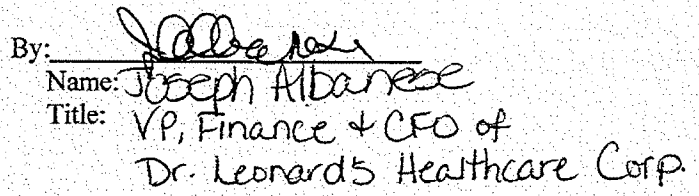 By:
Name: Joseph Albanese
Title: VP, Finance + CFO of
Dr. Leonards Healthcare Corp.